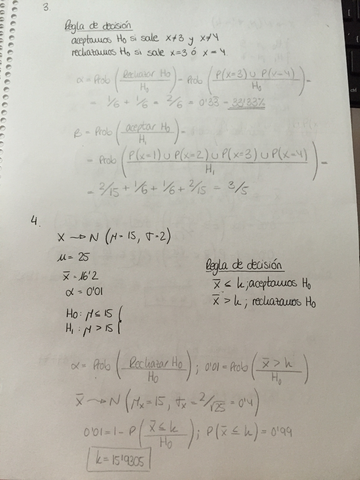 3
Regla de decisión
aceptamos H₀ si sale x≠3 y x≠4
rechazamos H₀ si sale x=3 ó x=4
α = Prob (Rechazar H₀ / H₀) = Prob (P(x=3) ∪ P(x=4) / H₀) =
= 1/6 + 1/6 = 2/6 = 0'33 = 33'33%
β = Prob (aceptar H₀ / H₁) =
= Prob (P(x=1) ∪ P(x=2) ∪ P(x=3) ∪ P(x=4) / H₁) =
= 2/15 + 1/6 + 1/6 + 2/15 = 3/5
4.
X → N (μ=15, σ=2)
n = 25
x̄ = 16'2
α = 0'01
H₀: μ ≤ 15
H₁: μ > 15
Regla de decisión
x̄ ≤ k; aceptamos H₀
x̄ > k; rechazamos H₀
α = Prob (Rechazar H₀ / H₀); 0'01 = Prob (x̄ > k / H₁)
x̄ → N (μx = 15, σx = 2/√25 = 0'4)
0'01 = 1 - P (x̄ ≤ k / H₀); P(x̄ ≤ k) = 0'99
k = 15'9305